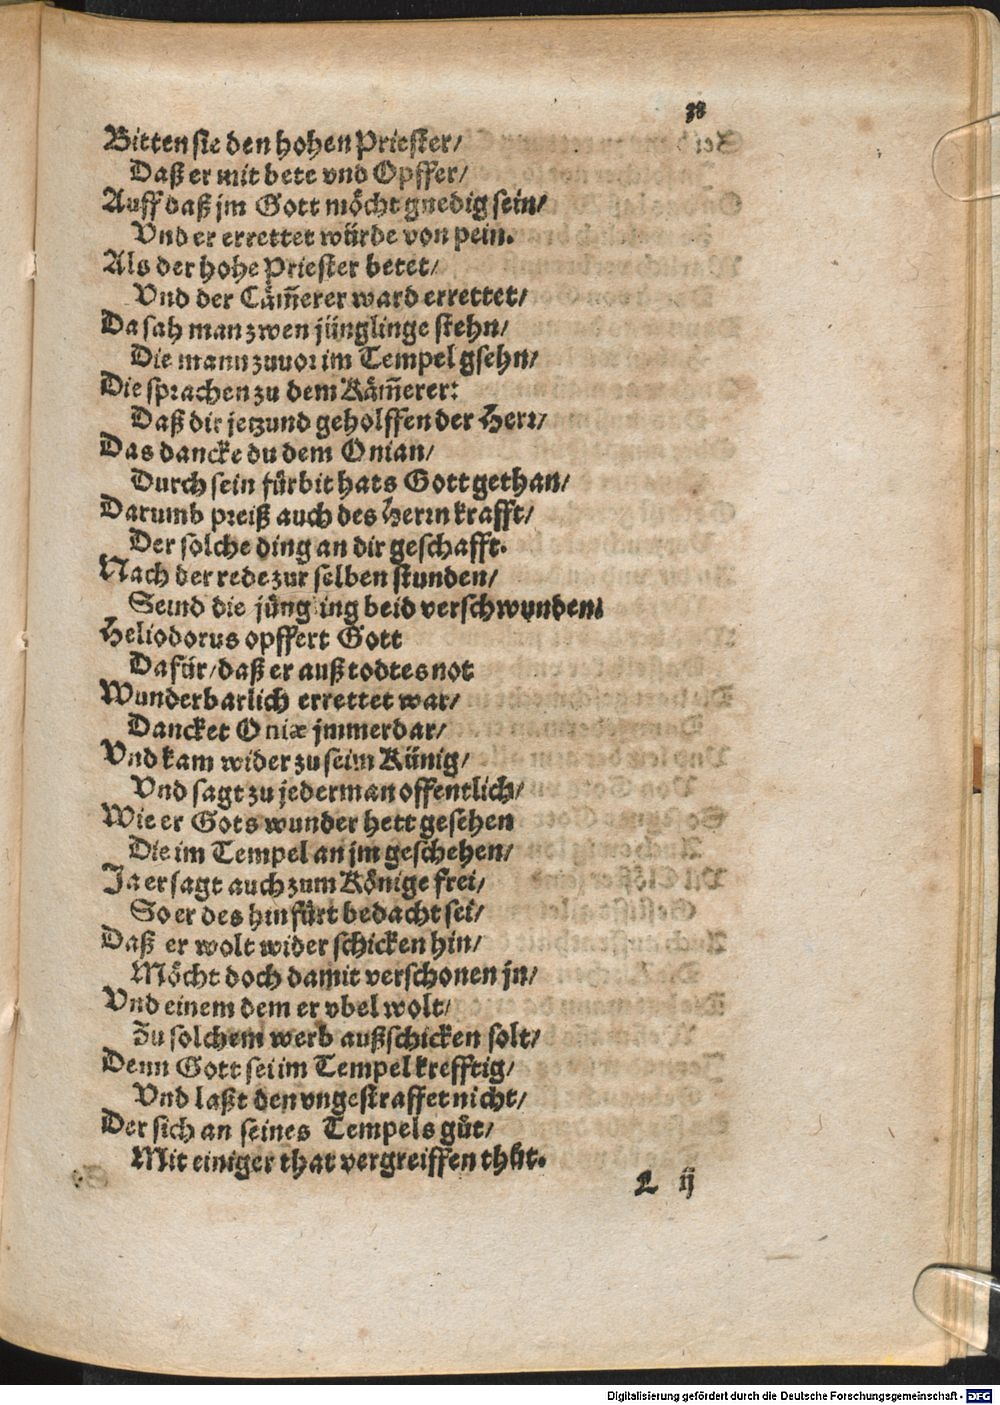 38
Bitten sie den hohen Priester/
Daß er mit bete vnd Opffer/
Auff daß jm Gott möcht gnedig sein/
Vnd er errettet würde von pein.
Als der hohe Priester betet/
Vnd der Cäm̃erer ward errettet/
Da sah man zwen jünglinge stehn/
Die mann zuuor im Tempel gsehn/
Die sprachen zu dem Käm̃erer:
Daß dir jetzund geholffen der Herr/
Das dancke du dem Onian/
Durch sein fürbit hats Gott gethan/
Darumb preiß auch des Herrn krafft/
Der solche ding an dir geschafft.
Nach der rede zur selben stunden/
Seind die jüngling beid verschwunden.
Heliodorus opffert Gott
Dafür/ daß er auß todtes not
Wunderbarlich errettet war/
Dancket Oniæ jmmerdar/
Vnd kam wider zu seim Künig/
Vnd sagt zu jederman offentlich/
Wie er Gots wunder hett gesehen
Die im Tempel an jm geschehen/
Ja er sagt auch zum Könige frei/
So er des hinfürt bedacht sei/
Daß er wolt wider schicken hin/
Möcht doch damit verschonen jn/
Vnd einem dem er vbel wolt/
Zu solchem werb außschicken solt/
Denn Gott sei im Tempel krefftig/
Vnd laßt den vngestraffet nicht/
Der sich an seines Tempels güt/
Mit einiger that vergreiffen thüt.
L ij
Digitalisierung gefördert durch die Deutsche Forschungsgemeinschaft - DFG